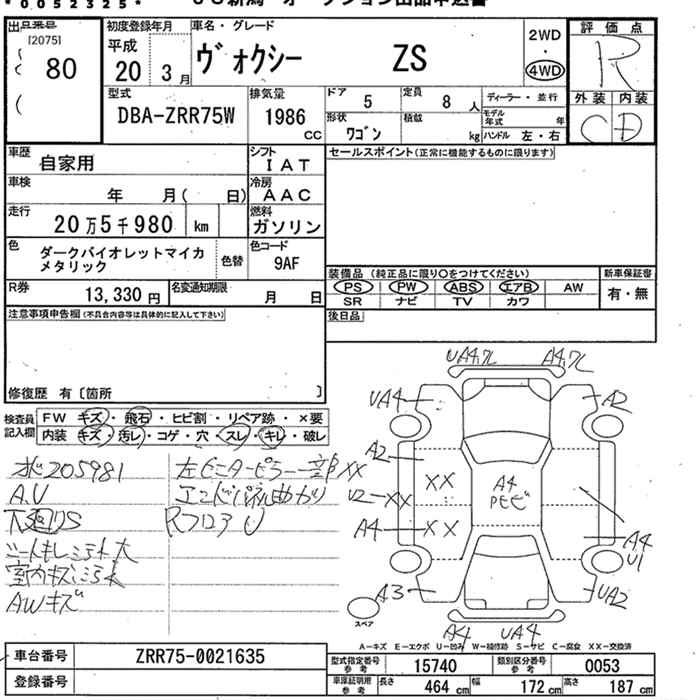 *0052325*
出品票
[2075]
80
初度登録年月
平成
20 3 月
車名・グレード
ヴォクシー ZS
2WD
・
4WD
評価点
R
外装 内装
C D
型式
DBA-ZRR75W
排気量
1986
CC
ドア
5
定員
8 人
形状
ワゴン
積載
kg
ディーラー・並行
モデル年式 年
ハンドル 左・右
車歴
自家用
シフト
IAT
車検
年 月( 日)
冷房
AAC
走行
20万5千980 km
燃料
ガソリン
色
ダークバイオレットマイカ
メタリック
色替
色コード
9AF
R券
13,330 円
名変通知期限
月 日
セールスポイント(正常に機能するものに限ります)
装備品 (純正品に限り○をつけてください)
PS PW ABS エアB AW
SR ナビ TV カワ
新車保証書
有・無
後日品
注意事項申告欄(不具合内容等は具体的に記入して下さい)
修復歴 有〔箇所 〕
検査員
記入欄
FW キズ・飛石・ヒビ割・リペア跡・×要
内装 キズ・汚レ・コゲ・穴・スレ・キレ・破レ
205981
A.V
下廻りS
シートキレ
室内キズ
AWキズ
左センターピラー一部XX
エンドパネル曲がり
RフロアU
UA4
A4
UA4
A2
A2
XX
A4
U2
XX
A4
XX
A4
U1
A3
UA2
A4 UA4
スペア
A-キズ E-エクボ U-凹み W-補修跡 S-サビ C-腐食 XX-交換済
車台番号
ZRR75-0021635
登録番号
型式指定番号
参考
15740
類別区分番号
参考
0053
車庫証明用
参考
長さ 464 cm 幅 172 cm 高さ 187 cm